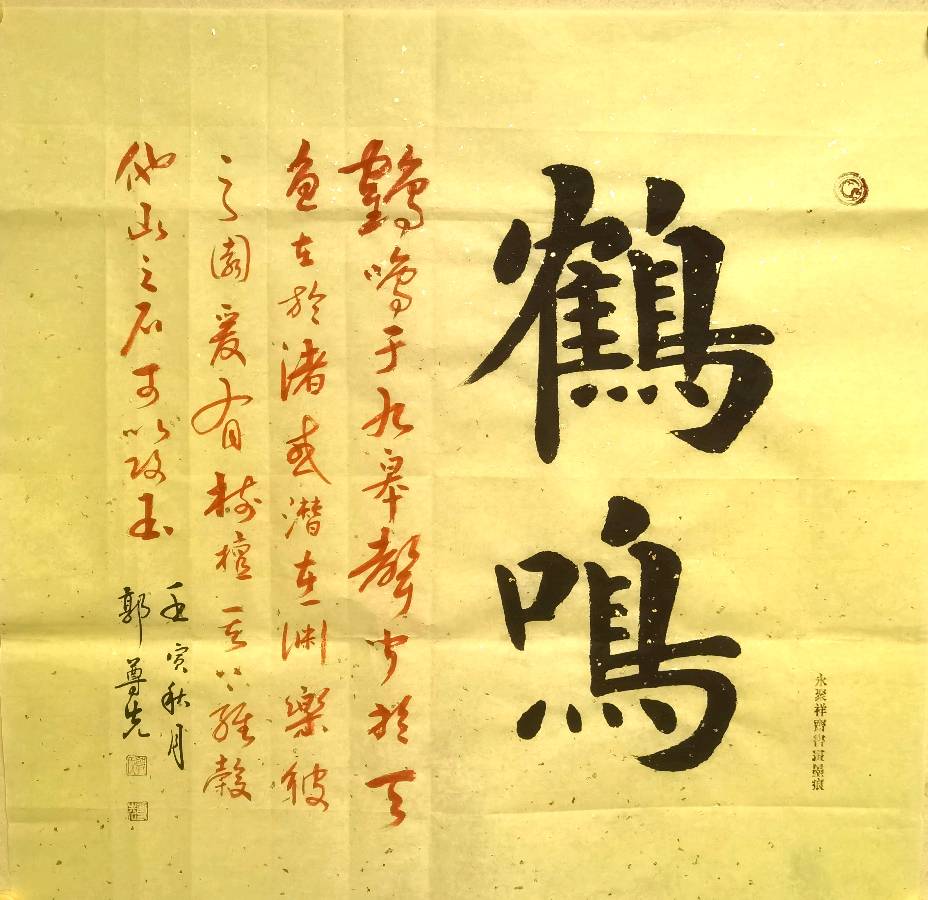 鶴鳴
鶴鳴于九皋聲聞於天
魚在於渚或潛在淵樂彼
之園爰有樹檀其下維穀
他山之石可以攻玉
壬寅秋月
郭尊先
永聚祥齋書畫墨痕